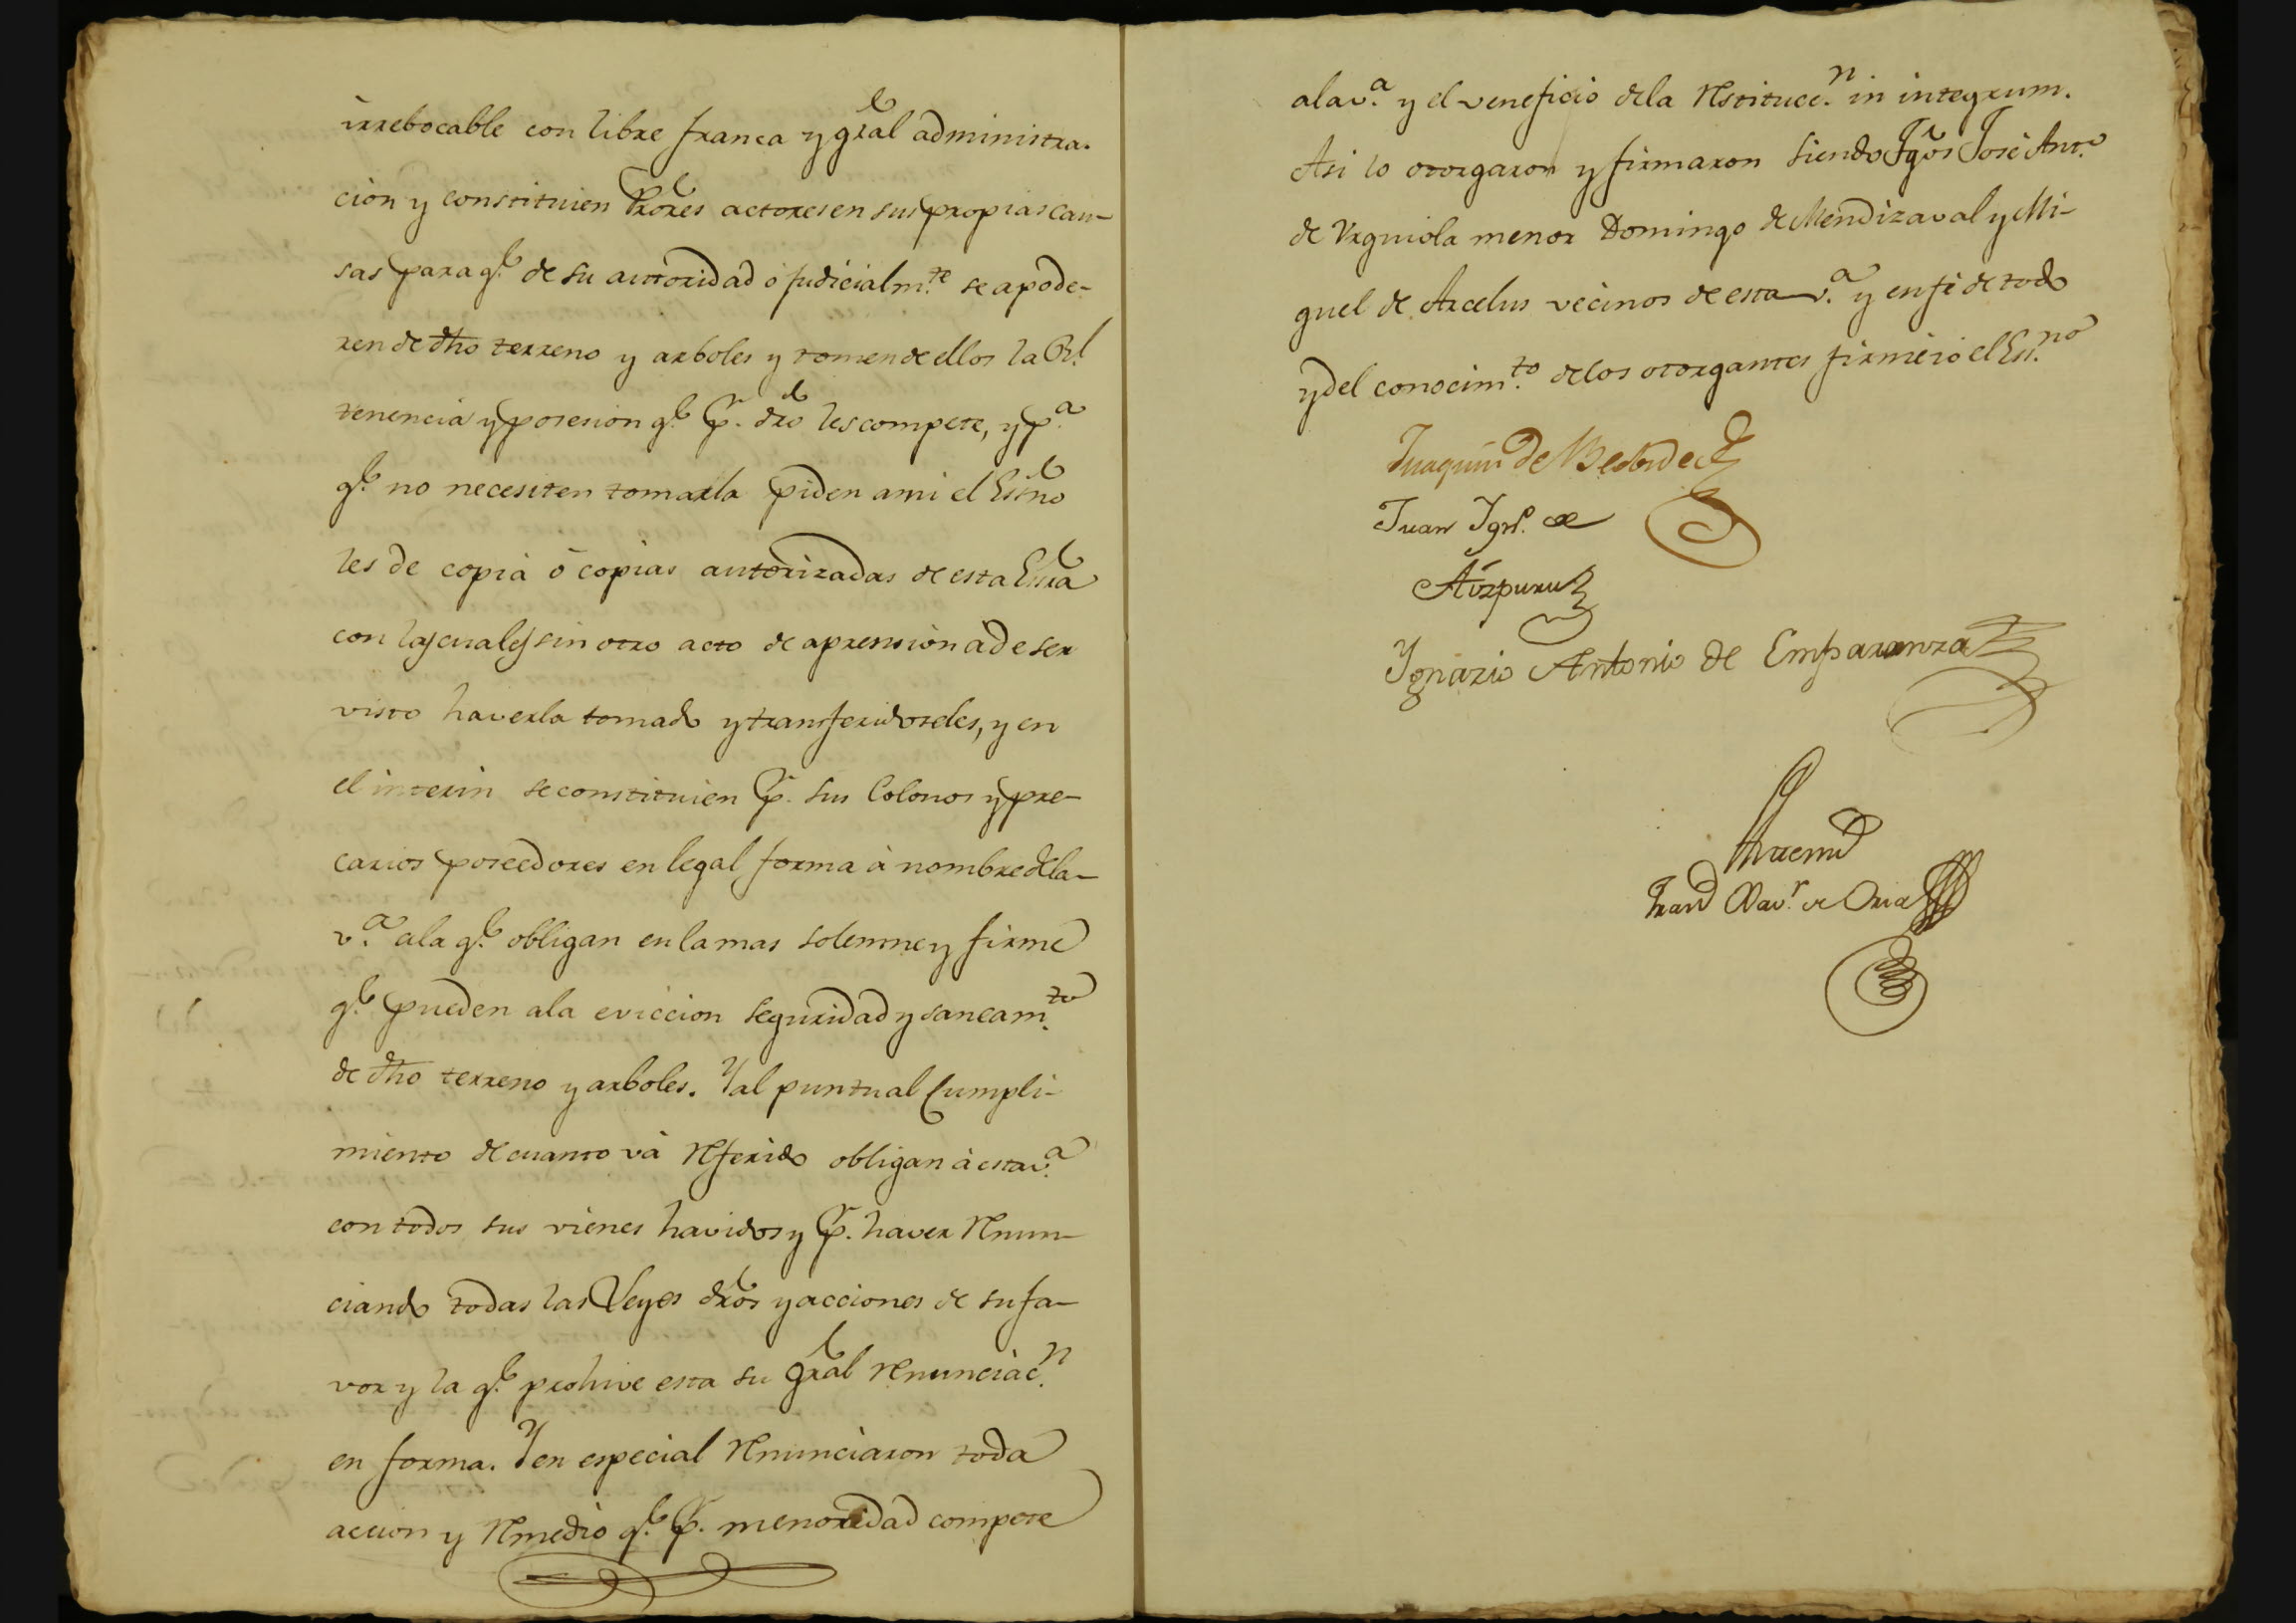 irrebocable con libre franca y gral administra-
cion y constituien Prores actores en sus propias cau-
sas para q.e de su autoridad ó judicialm.te se apode-
ren de dho terreno y arboles y tomen de ellos la Rl.
tenencia y posesion q.e p.r dro les compete, y p.a
q.e no necesiten tomarla piden a mi el Esno
les de copia ó copias autorizadas de esta Esra
con las cuales sin otro acto de aprension a de ser
visto haverla tomado y transferidoseles, y en
el interin se constituien p.r sus Colonos y pre-
carios poseedores en legal forma à nombre de la
v.a a la q.e obligan en la mas solemne y firme
q.e pueden a la eviccion seguridad y saneam.to
de dho terreno y arboles. Y al puntual Cumpli-
miento de cuanto và referido obligan à esta v.a
con todos sus vienes havidos y p.r haver renun-
ciando todas las Leyes dros y acciones de su fa-
vor y la q.e prohive esta su gral renunciac.n
en forma. Y en especial renunciaron toda
accion y remedio q.e p.r menoridad compete
a la v.a y el veneficio de la restitucc.n in integrum.
Asi lo otorgaron y firmaron siendo Tgos José Ant.o
de Urguiola menor Domingo de Mendizaval y Mi-
guel de Arcelus vecinos de esta v.a y en fé de todo
y del conocim.to de los otorgantes firmé io el Es.no
Juaquin de
Juan Ign.o de
Aizpuru
Ygnazio Antonio de Emparanza
Antemi
Fran.co Xav.r de Oria